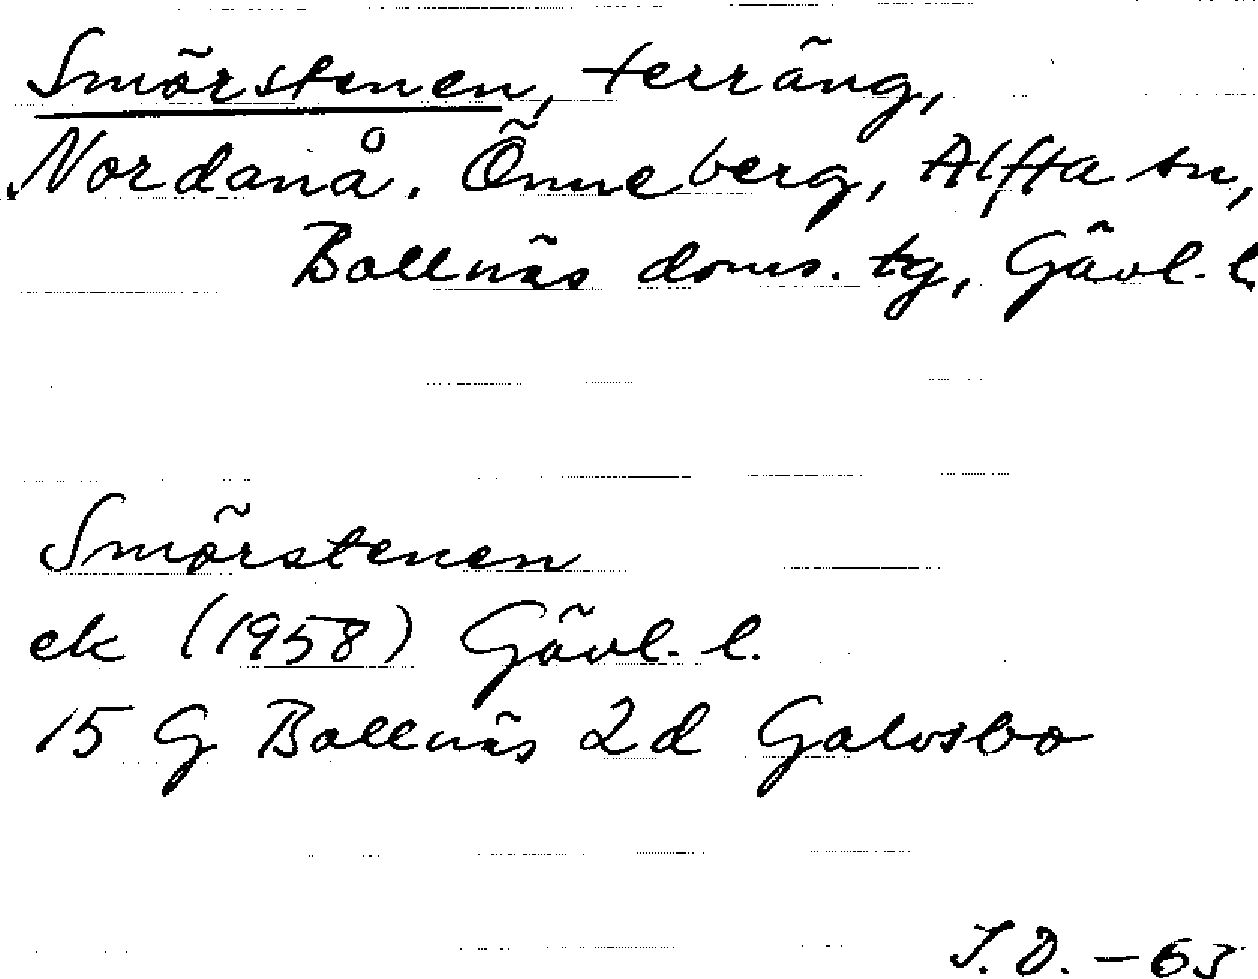 Smörstenen, terräng,
Nordanå. Önneberg, Alfta sn,
Bollnäs doms. tg, Gävl. l.
Smörstenen
ek (1958) Gävl. l.
15 G Bollnäs 2d Galvsbo
J.D. - 63